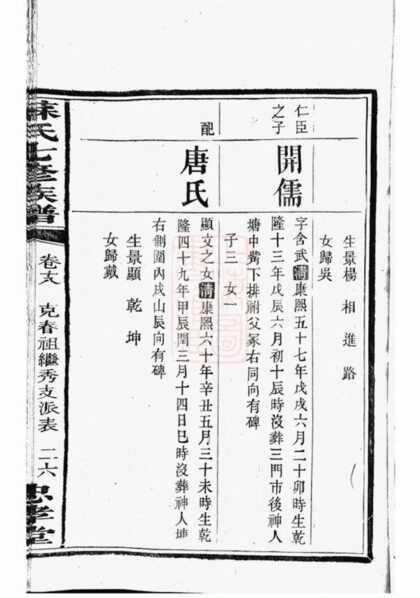 生景楊　相　進　路
女歸吳
仁臣
之子
開儒
字含武清康熙五十七年戊戌六月二十卯時生乾
隆十三年戊辰六月初十辰時沒葬三門市後神人
塘中嘴下排祔父冢右同向有碑
子三　女一
配
唐氏
顯文之女清康熙六十年辛丑五月三十未時生乾
隆四十九年甲辰閏三月十四日巳時沒葬神人坤
右側圍內戌山辰向有碑
生景顯　乾　坤
女歸戴
氏七修族譜
克春祖繼秀支派表
二六
忠孝堂